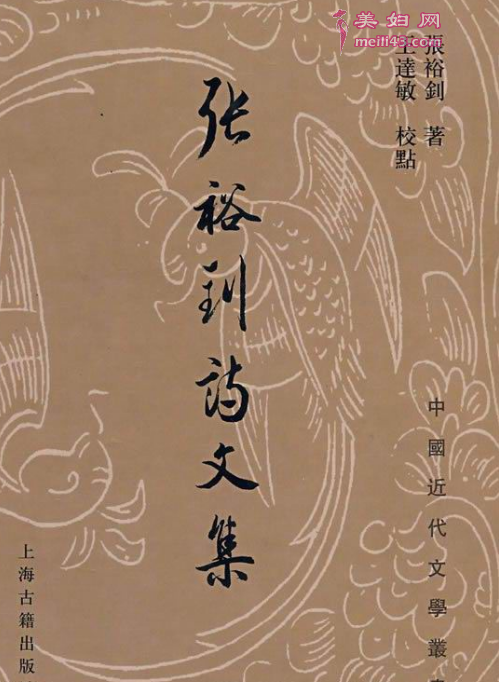 美妇网
meili43.com
張裕釗 著
王達敏 校點
張裕釗詩文集
中國近代文學叢
上海古籍出版